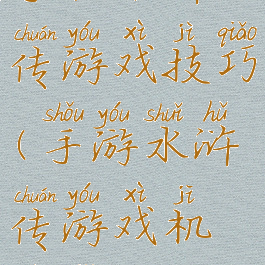 chuán yóu xì jì qiǎo
传游戏技巧
shǒu yóu shuǐ hǔ
(手游水浒
chuán yóu xì jī
传游戏机